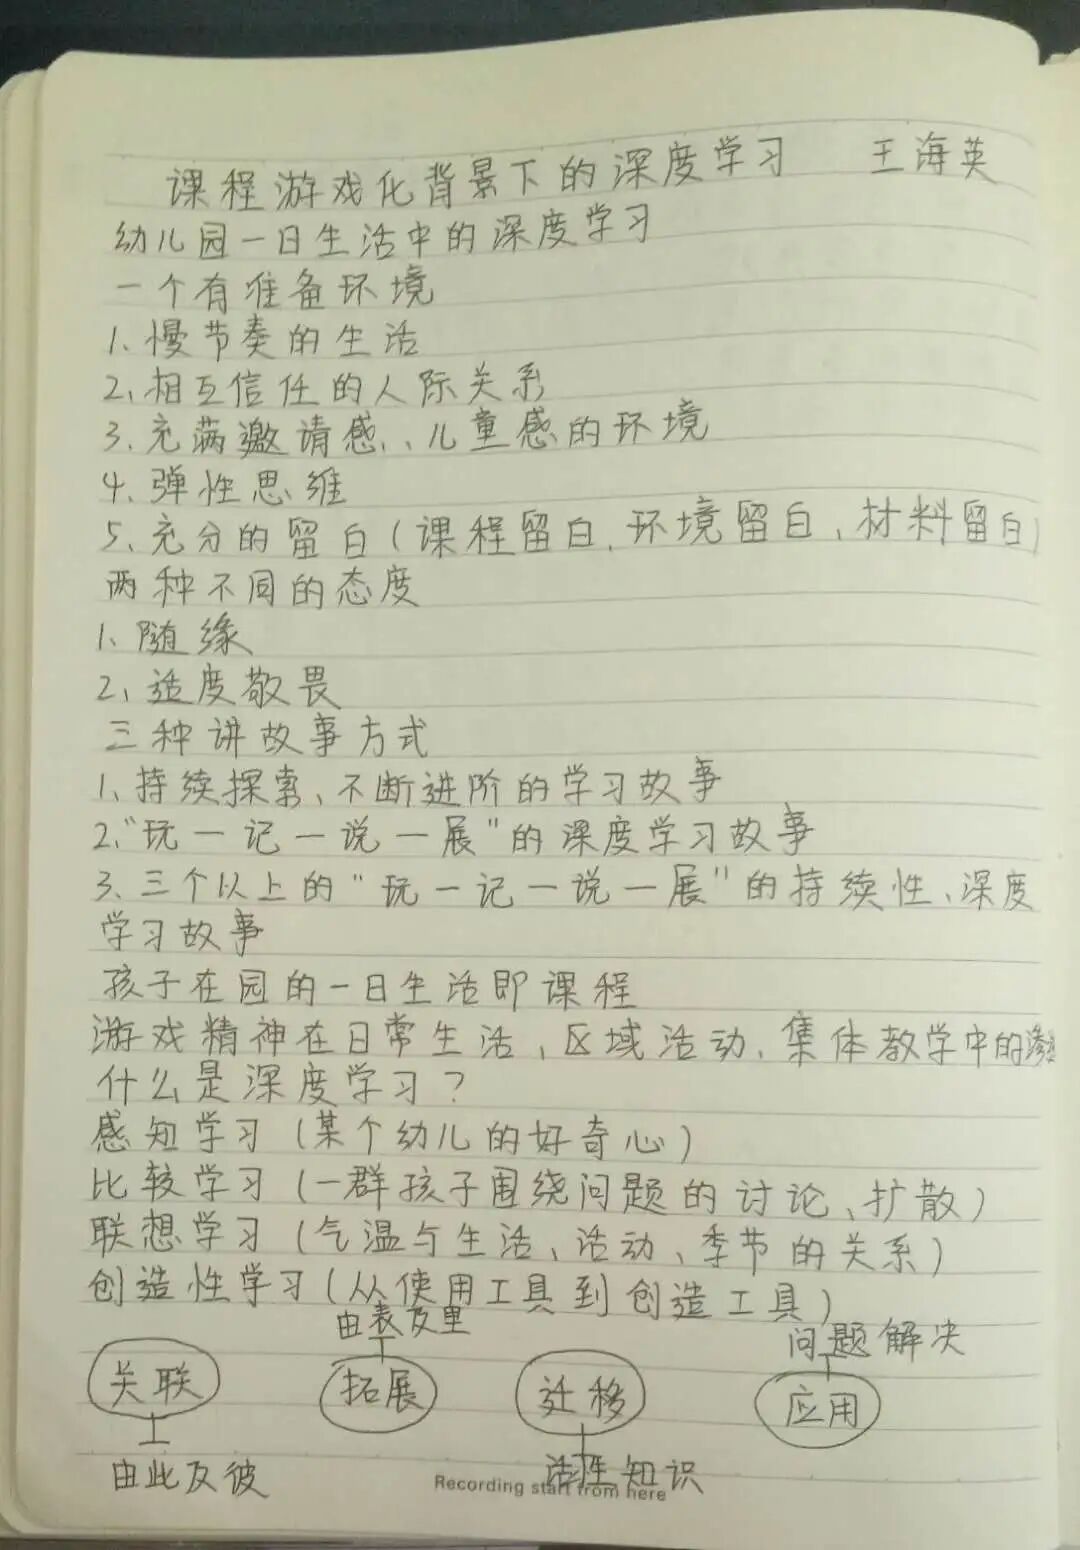 课程游戏化背景下的深度学习 王海英
幼儿园一日生活中的深度学习
一个有准备环境
1、慢节奏的生活
2、相互信任的人际关系
3、充满邀请感、、儿童感的环境
4、弹性思维
5、充分的留白(课程留白、环境留白、材料留白)
两种不同的态度
1、随缘
2、适度敬畏
三种讲故事方式
1、持续探索、不断进阶的学习故事
2、"玩一记一说一展"的深度学习故事
3、三个以上的"玩一记一说一展"的持续性、深度
学习故事
孩子在园的一日生活即课程
游戏精神在日常生活、区域活动、集体教学中的渗透
什么是深度学习?
感知学习(某个幼儿的好奇心)
比较学习(一群孩子围绕问题的讨论、扩散)
联想学习(气温与生活、活动、季节的关系)
创造性学习(从使用工具到创造工具)
由表及里 问题解决
关联 拓展 迁移 应用
由此及彼 活性知识
Recording start from here